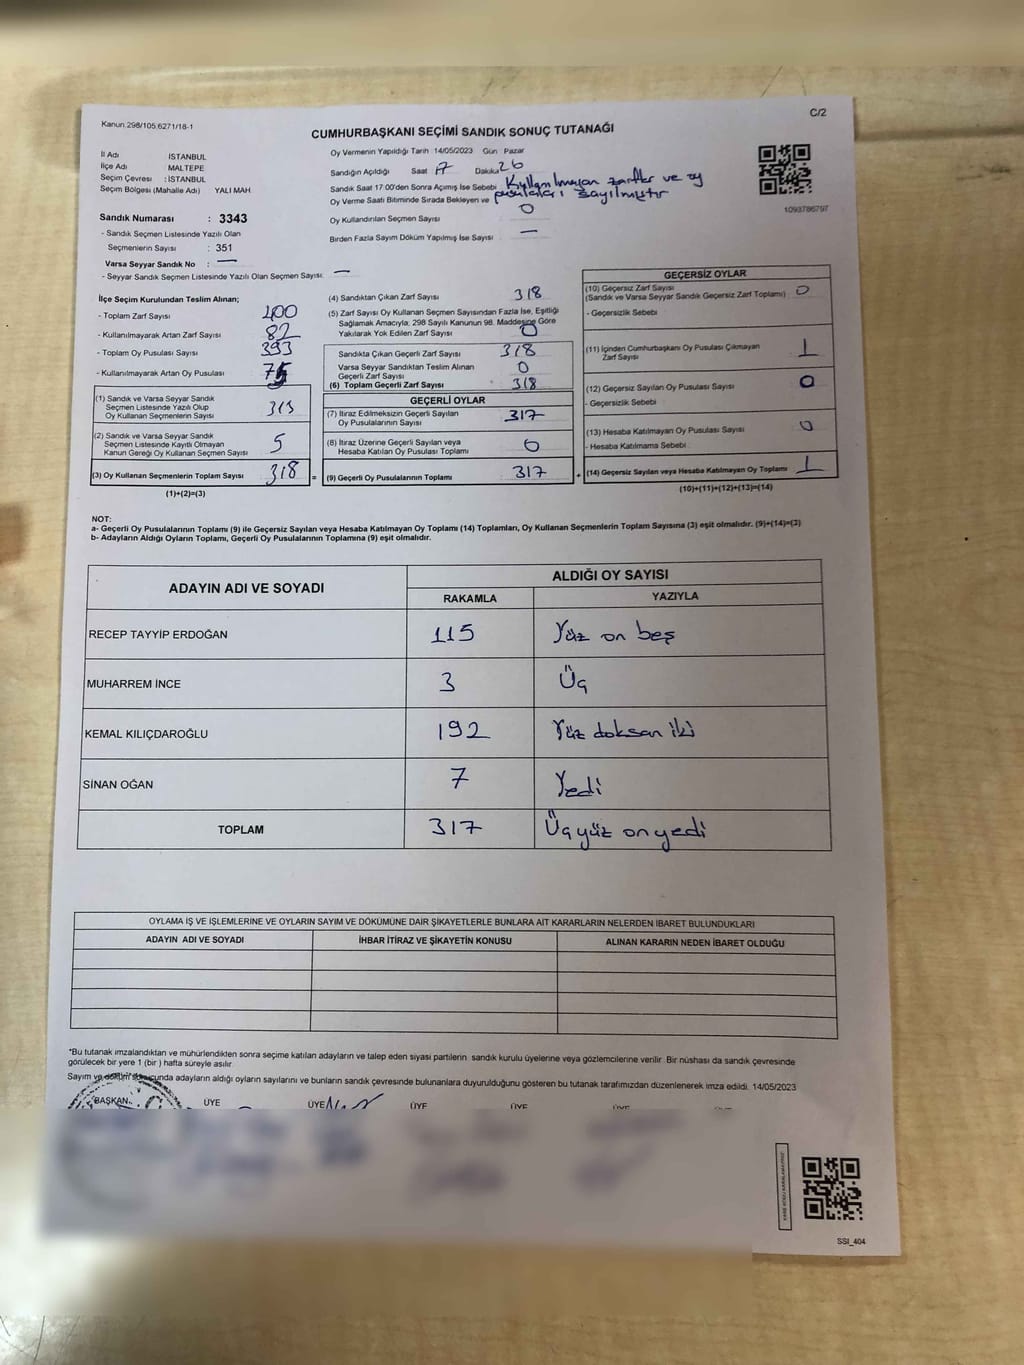 C/2
Kanun.298/105.6271/18-1
CUMHURBAŞKANI SEÇİMİ SANDIK SONUÇ TUTANAĞI
İl Adı İSTANBUL
İlçe Adı MALTEPE
Seçim Çevresi : İSTANBUL
Seçim Bölgesi (Mahalle Adı) YALI MAH
Sandık Numarası : 3343
- Sandık Seçmen Listesinde Yazılı Olan
Seçmenlerin Sayısı : 351
Varsa Seyyar Sandık No : —
- Seyyar Sandık Seçmen Listesinde Yazılı Olan Seçmen Sayısı: —
Oy Vermenin Yapıldığı Tarih :14/05/2023 Gün Pazar
Sandığın Açıldığı Saat 17 Dakika 26
Sandık Saat 17.00'den Sonra Açımış İse Sebebi Kullanılmayan zarflar ve oy
pusulaları sayılmıştır
Oy Verme Saati Bitiminde Sırada Bekleyen ve
Oy Kullandırılan Seçmen Sayısı 0
Birden Fazla Sayım Döküm Yapılmış İse Sayısı —
1093786797
İlçe Seçim Kurulundan Teslim Alınan;
- Toplam Zarf Sayısı 400
- Kullanılmayarak Artan Zarf Sayısı 82
- Toplam Oy Pusulası Sayısı 393
- Kullanılmayarak Artan Oy Pusulası 75
(1) Sandık ve Varsa Seyyar Sandık
Seçmen Listesinde Yazılı Olup
Oy Kullanan Seçmenlerin Sayısı 313
(2) Sandık ve Varsa Seyyar Sandık
Seçmen Listesinde Kayıtlı Olmayan
Kanun Gereği Oy Kullanan Seçmen Sayısı 5
(3) Oy Kullanan Seçmenlerin Toplam Sayısı 318 =
(1)+(2)=(3)
(4) Sandıktan Çıkan Zarf Sayısı 318
(5) Zarf Sayısı Oy Kullanan Seçmen Sayısından Fazla İse, Eşitliği
Sağlamak Amacıyla, 298 Sayılı Kanunun 98. Maddesine Göre
Yakılarak Yok Edilen Zarf Sayısı 0
Sandıkta Çıkan Geçerli Zarf Sayısı 318
Varsa Seyyar Sandıktan Teslim Alınan
Geçerli Zarf Sayısı 0
(6) Toplam Geçerli Zarf Sayısı 318
GEÇERLİ OYLAR
(7) İtiraz Edilmeksizin Geçerli Sayılan
Oy Pusulalarının Sayısı 317
(8) İtiraz Üzerine Geçerli Sayılan veya
Hesaba Katılan Oy Pusulası Toplamı 0
(9) Geçerli Oy Pusulalarının Toplamı 317 +
GEÇERSİZ OYLAR
(10) Geçersiz Zarf Sayısı
(Sandık ve Varsa Seyyar Sandık Geçersiz Zarf Toplamı) 0
- Geçersizlik Sebebi
(11) İçinden Cumhurbaşkanı Oy Pusulası Çıkmayan
Zarf Sayısı 1
(12) Geçersiz Sayılan Oy Pusulası Sayısı 0
- Geçersizlik Sebebi
(13) Hesaba Katılmayan Oy Pusulası Sayısı 0
- Hesaba Katılmama Sebebi
(14) Geçersiz Sayılan veya Hesaba Katılmayan Oy Toplamı 1
(10)+(11)+(12)+(13)=(14)
NOT:
a- Geçerli Oy Pusulalarının Toplamı (9) ile Geçersiz Sayılan veya Hesaba Katılmayan Oy Toplamı (14) Toplamları, Oy Kullanan Seçmenlerin Toplam Sayısına (3) eşit olmalıdır. (9)+(14)=(3)
b- Adayların Aldığı Oyların Toplamı, Geçerli Oy Pusulalarının Toplamına (9) eşit olmalıdır.
ADAYIN ADI VE SOYADI ALDIĞI OY SAYISI
RAKAMLA YAZIYLA
RECEP TAYYİP ERDOĞAN 115 Yüz on beş
MUHARREM İNCE 3 Üç
KEMAL KILIÇDAROĞLU 192 Yüz doksan iki
SİNAN OĞAN 7 Yedi
TOPLAM 317 Üç yüz on yedi
OYLAMA İŞ VE İŞLEMLERİNE VE OYLARIN SAYIM VE DÖKÜMÜNE DAİR ŞİKAYETLERLE BUNLARA AİT KARARLARIN NELERDEN İBARET BULUNDUKLARI
ADAYIN ADI VE SOYADI İHBAR İTİRAZ VE ŞİKAYETİN KONUSU ALINAN KARARIN NEDEN İBARET OLDUĞU
*Bu tutanak imzalandıktan ve mühürlendikten sonra seçime katılan adayların ve talep eden siyasi partilerin sandık kurulu üyelerine veya gözlemcilerine verilir. Bir nüshası da sandık çevresinde
görülecek bir yere 1 (bir) hafta süreyle asılır.
Sayım ve döküm sonucunda adayların aldığı oyların sayılarını ve bunların sandık çevresinde bulunanlara duyurulduğunu gösteren bu tutanak tarafımızdan düzenlenerek imza edildi. 14/05/2023
BAŞKAN ÜYE ÜYE ÜYE ÜYE ÜYE ÜYE
SSI_404